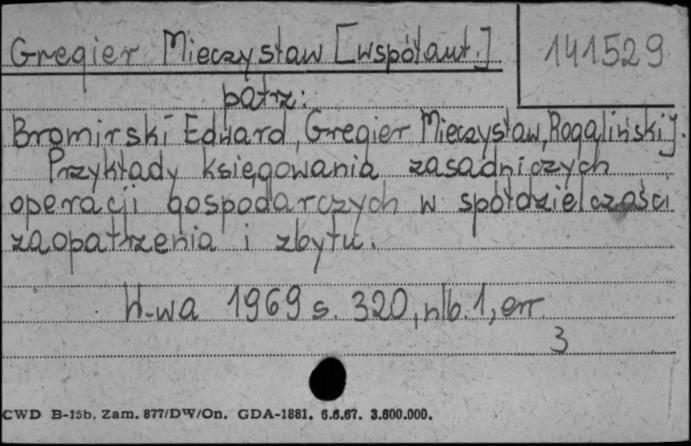 Gregier Mieczysław [współaut.]
141529
patrz:
Bromirski Edward, Gregier Mieczysław, Rogaliński J.
Przykłady księgowania zasadniczych
operacji gospodarczych w spółdzielczości
zaopatrzenia i zbytu.
W-wa 1969 s. 320, nlb. 1, err
3
CWD B-15b. Zam. 877/DW/On. GDA-1881. 6.6.67. 3.600.000.